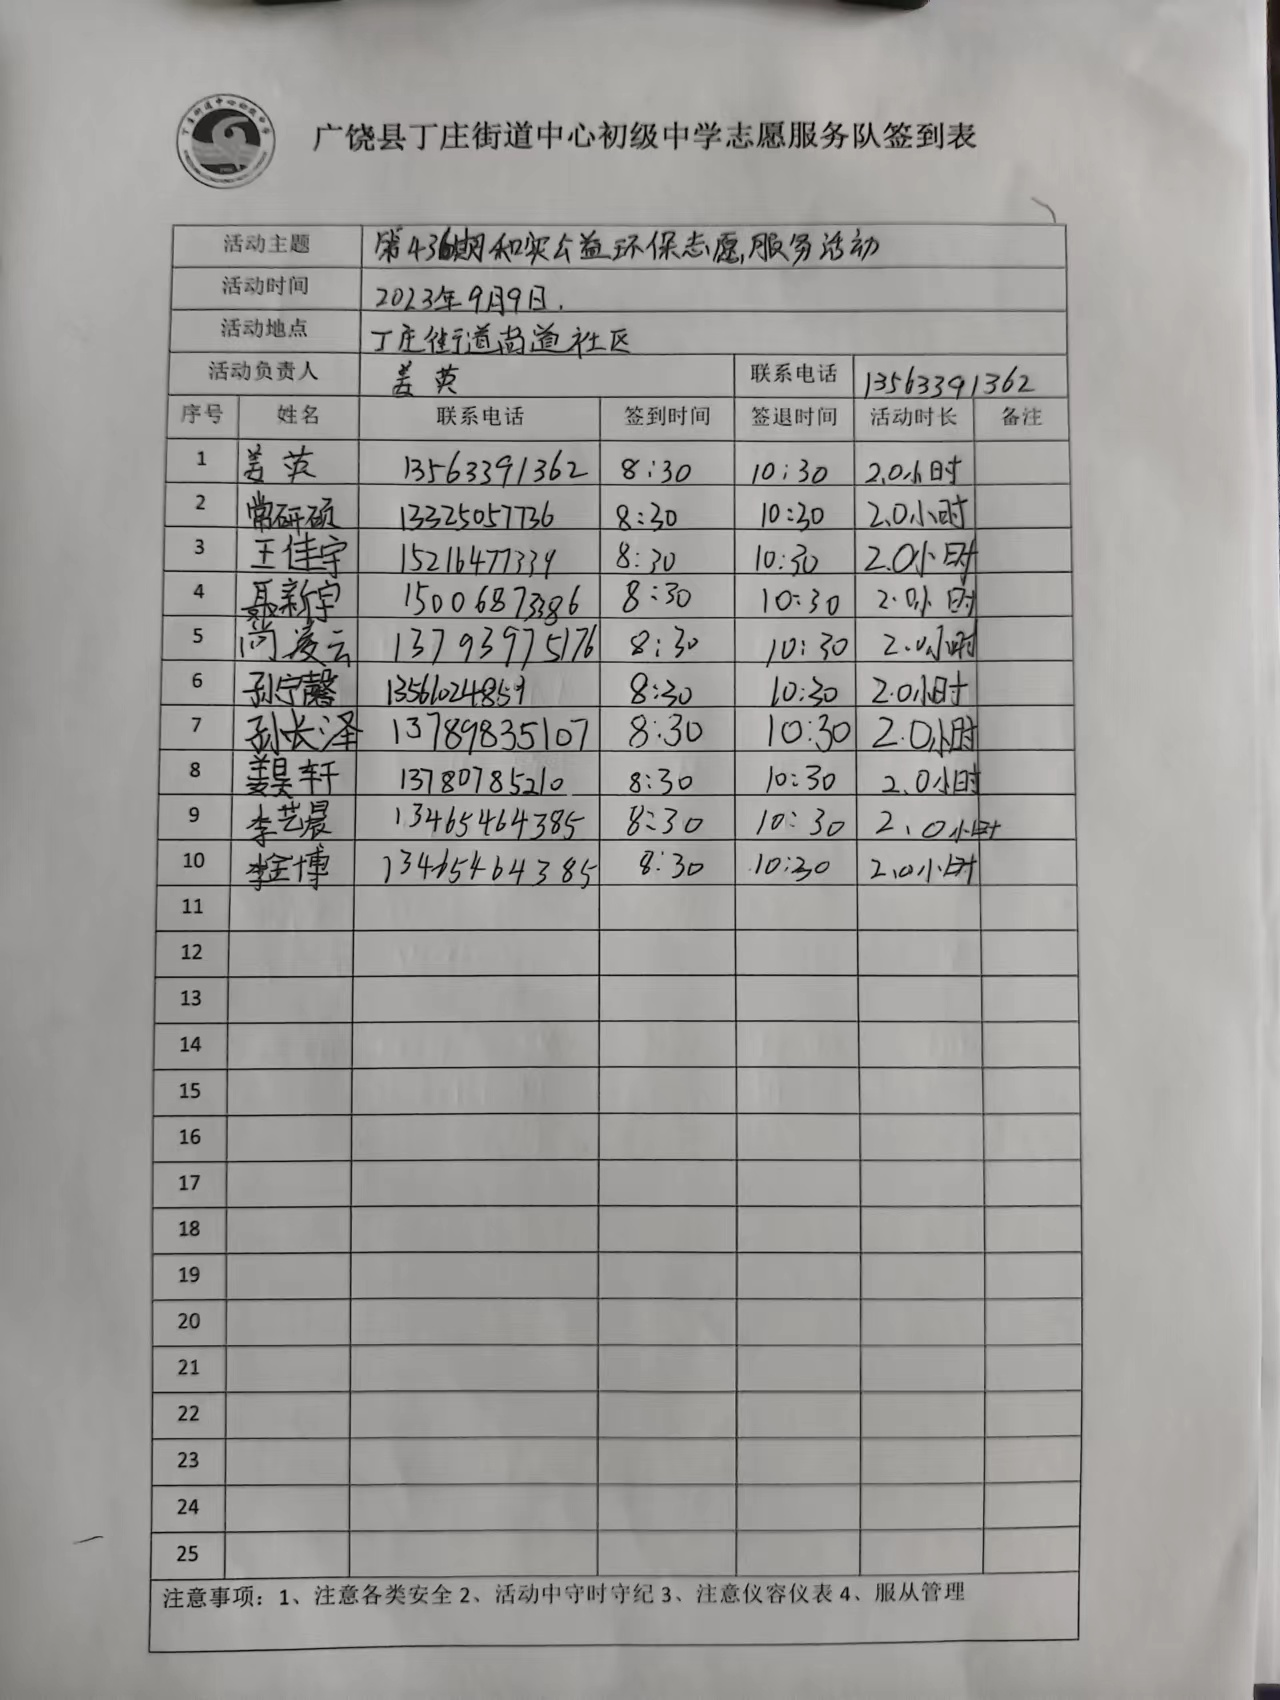 广饶县丁庄街道中心初级中学志愿服务队签到表
活动主题 第436期和实公益环保志愿服务活动
活动时间 2023年9月9日.
活动地点 丁庄街道尚道社区
活动负责人 姜英 联系电话 13563391362
序号 姓名 联系电话 签到时间 签退时间 活动时长 备注
1 姜英 13563391362 8:30 10:30 2.0小时
2 常研硕 13325057736 8:30 10:30 2.0小时
3 王佳宇 15216477339 8:30 10:30 2.0小时
4 聂新宇 15006873386 8:30 10:30 2.0小时
5 尚凌云 13793975176 8:30 10:30 2.0小时
6 孙宁馨 13561024859 8:30 10:30 2.0小时
7 孙长泽 13789835107 8:30 10:30 2.0小时
8 姜昊轩 13780785210 8:30 10:30 2.0小时
9 李艺晨 13465464385 8:30 10:30 2.0小时
10 李金博 13465464385 8:30 10:30 2.0小时
11
12
13
14
15
16
17
18
19
20
21
22
23
24
25
注意事项：1、注意各类安全 2、活动中守时守纪 3、注意仪容仪表 4、服从管理